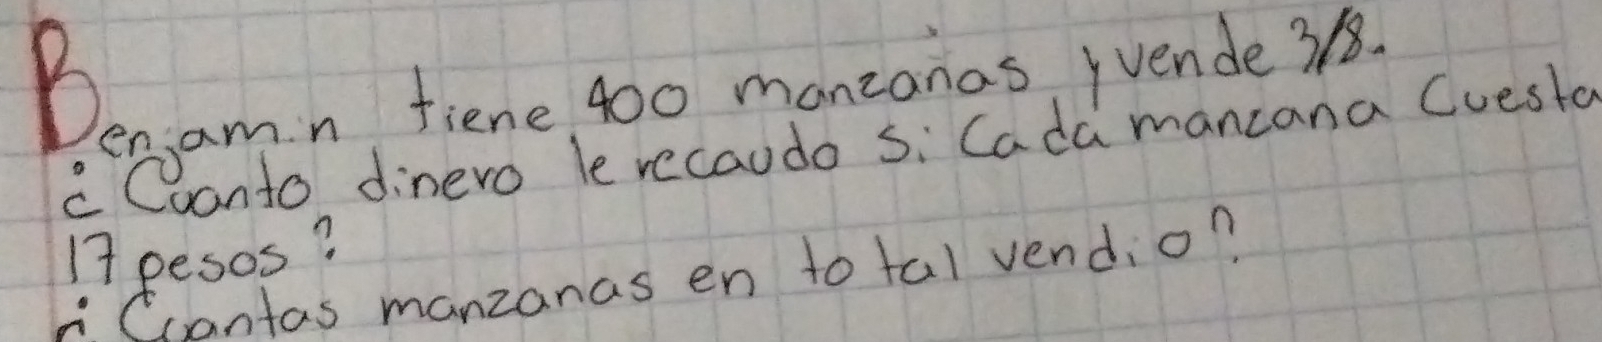 Benjamin tiene 400 manzanas y vende 3/8.
¿Cuanto dinero le recaudo si Cada manzana Cuesta
17 pesos?
¿Cuantas manzanas en total vendio?